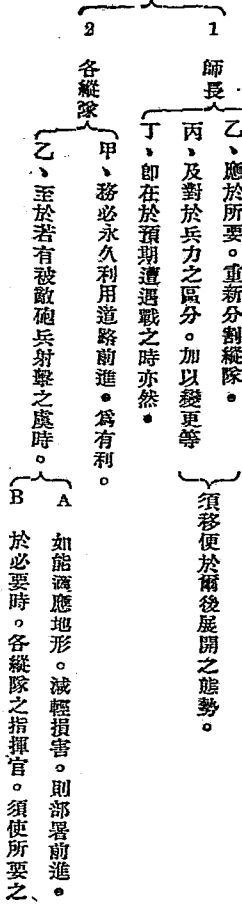 1 師長
乙、應於所要。重新分割縱隊。
丙、及對於兵力之區分。加以變更等
丁、卽在於預期遭遇戰之時亦然。
須移便於爾後展開之態勢。
2 各縱隊
甲、務必永久利用道路前進。爲有利。
乙、至於若有被敵砲兵射擊之虞時。
A 如能適應地形。減輕損害。則部署前進。
B 於必要時。各縱隊之指揮官。須使所要之、